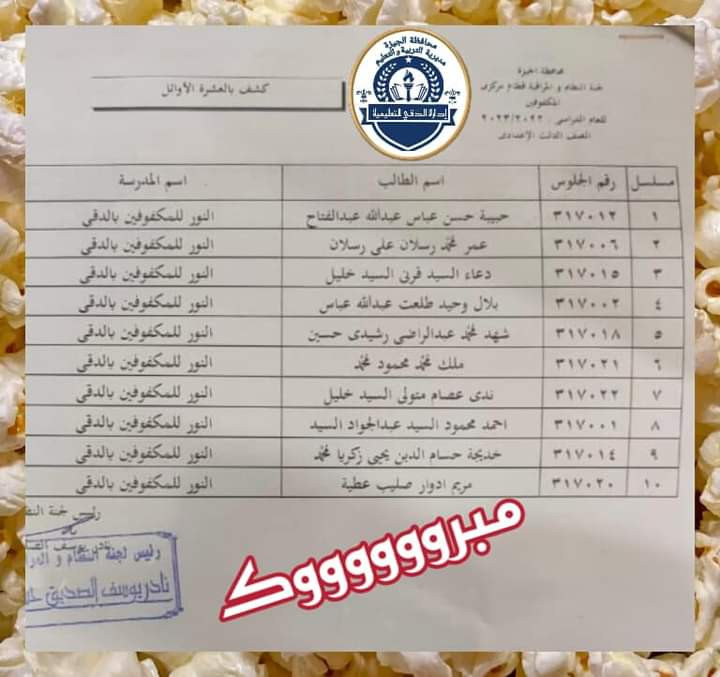 محافظة الجيزة
لجنة النظام و المراقبة قطاع مركزى
المكفوفين
للعام الدراسى ٢٠٢٣/٢٠٢٢
الصف الثالث الإعدادى
محافظة الجيزة
مديرية التربية والتعليم
إدارة الدقي التعليمية
كشف بالعشرة الأوائل
مسلسل رقم الجلوس اسم الطالب اسم المدرسة
١ ٣١٧٠١٢ حبيبة حسن عباس عبدالله عبدالفتاح النور للمكفوفين بالدقى
٢ ٣١٧٠٠٦ عمر محمد رسلان على رسلان النور للمكفوفين بالدقى
٣ ٣١٧٠١٥ دعاء السيد قرنى السيد خليل النور للمكفوفين بالدقى
٤ ٣١٧٠٠٢ بلال وحيد طلعت عبدالله عباس النور للمكفوفين بالدقى
٥ ٣١٧٠١٨ شهد محمد عبدالراضى رشيدى حسين النور للمكفوفين بالدقى
٦ ٣١٧٠٢١ ملك محمد محمود محمد النور للمكفوفين بالدقى
٧ ٣١٧٠٢٢ ندى عصام متولى السيد خليل النور للمكفوفين بالدقى
٨ ٣١٧٠٠١ احمد محمود السيد عبدالجواد السيد النور للمكفوفين بالدقى
٩ ٣١٧٠١٤ خديجة حسام الدين يحيى زكريا محمد النور للمكفوفين بالدقى
١٠ ٣١٧٠٢٠ مريم ادوار صليب عطية النور للمكفوفين بالدقى
رئيس لجنة
رئيس لجنة النظام و
نادر يوسف الصديق
مبرووووووووك